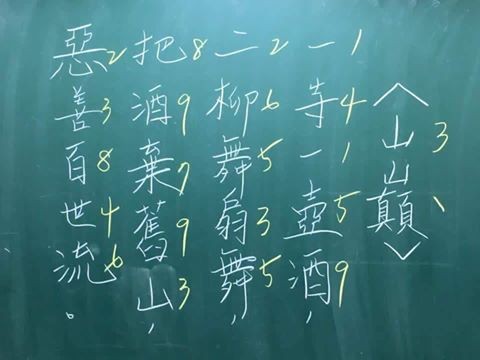 〈山巔〉 3 、
一1寺4一1壺5酒9，
二2柳6舞5扇3舞5，
把8酒9棄7舊9山3，
惡2善3百8世4流6。